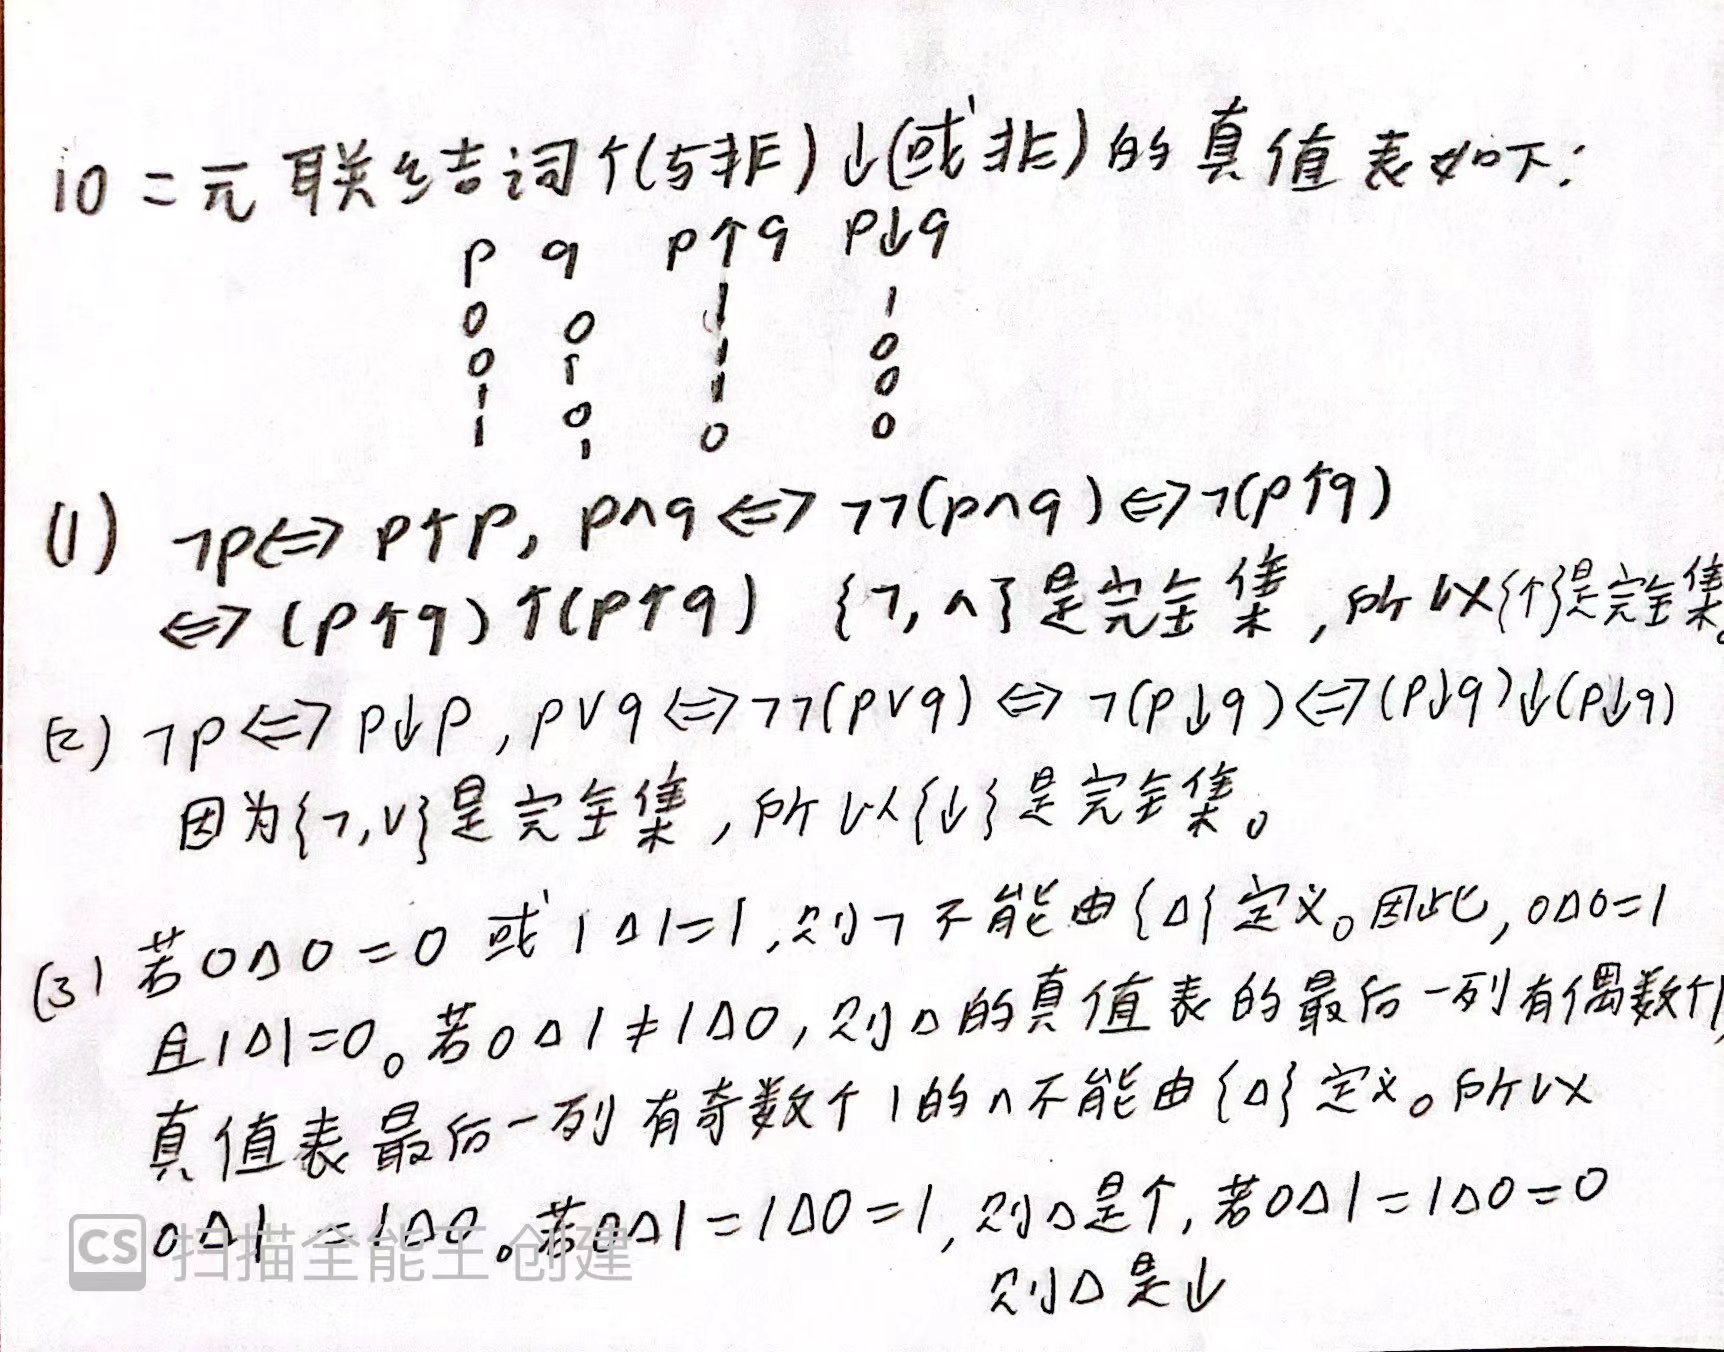 10 二元联结词↑(与非)↓(或非)的真值表如下:
p q p↑q p↓q
0 0 1 1
0 1 1 0
1 0 1 0
1 1 0 0
(1) ¬p⇔p↑p, p∧q⇔¬¬(p∧q)⇔¬(p↑q)
⇔(p↑q)↑(p↑q) {¬,∧}是完全集,所以{↑}是完全集。
(2) ¬p⇔p↓p,p∨q⇔¬¬(p∨q)⇔¬(p↓q)⇔(p↓q)↓(p↓q)
因为{¬,∨}是完全集,所以{↓}是完全集。
(3) 若0Δ0=0或1Δ1=1,则¬不能由{Δ}定义。因此,0Δ0=1
且1Δ1=0。若0Δ1≠1Δ0,则Δ的真值表的最后一列有偶数个1,
真值表最后一列有奇数个1的∧不能由{Δ}定义。所以
0Δ1=1Δ0。若0Δ1=1Δ0=1,则Δ是↑,若0Δ1=1Δ0=0
则Δ是↓
CS 扫描全能王 创建